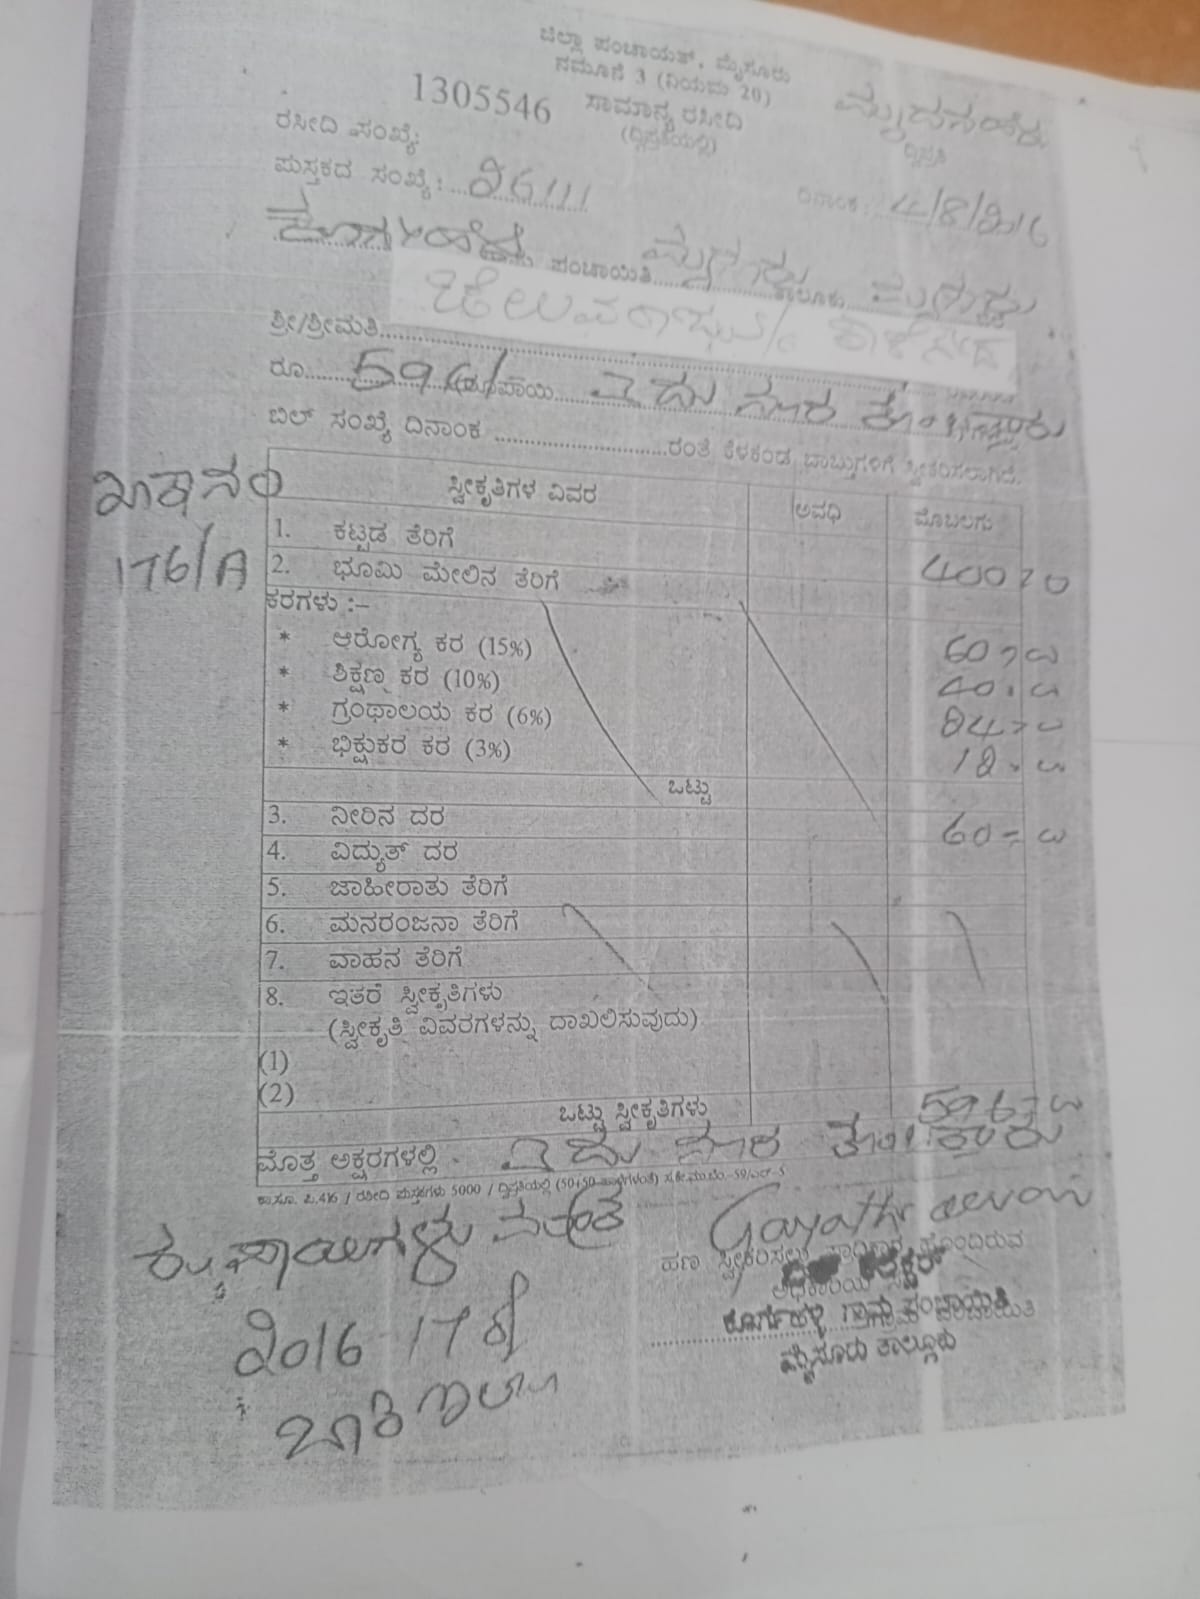 ಜಿಲ್ಲಾ ಪಂಚಾಯತ್, ಮೈಸೂರು
ನಮೂನೆ 3 (ನಿಯಮ 20)
1305546 ಸಾಮಾನ್ಯ ರಸೀದಿ
ರಸೀದಿ ಸಂಖ್ಯೆ: (ದ್ವಿಪ್ರತಿಯಲ್ಲಿ) ದ್ವಿಪ್ರತಿ
ಪುಸ್ತಕದ ಸಂಖ್ಯೆ: 26111 ದಿನಾಂಕ: 4/8/2016
ಪಂಚಾಯಿತಿ ಮೈಸೂರು ತಾಲೂಕು ಮೈಸೂರು
ಶ್ರೀ/ಶ್ರೀಮತಿ ಚೆಲುವರಾಜು
ರೂ. 596/ (ರೂಪಾಯಿ ಐದು ನೂರ
ಬಿಲ್ ಸಂಖ್ಯೆ ದಿನಾಂಕ ರಂತೆ ಕೆಳಕಂಡ ಬಾಬ್ತುಗಳಿಗೆ ಸ್ವೀಕರಿಸಲಾಗಿದೆ.
ಖಾತಾ ನಂ
176/A
ಸ್ವೀಕೃತಿಗಳ ವಿವರ ಅವಧಿ ಮೊಬಲಗು
1. ಕಟ್ಟಡ ತೆರಿಗೆ
2. ಭೂಮಿ ಮೇಲಿನ ತೆರಿಗೆ 400=00
ಕರಗಳು :–
* ಆರೋಗ್ಯ ಕರ (15%) 60=00
* ಶಿಕ್ಷಣ ಕರ (10%) 40=00
* ಗ್ರಂಥಾಲಯ ಕರ (6%) 24=00
* ಭಿಕ್ಷುಕರ ಕರ (3%) 12=00
ಒಟ್ಟು
3. ನೀರಿನ ದರ 60=00
4. ವಿದ್ಯುತ್ ದರ
5. ಜಾಹೀರಾತು ತೆರಿಗೆ
6. ಮನರಂಜನಾ ತೆರಿಗೆ
7. ವಾಹನ ತೆರಿಗೆ
8. ಇತರೆ ಸ್ವೀಕೃತಿಗಳು
(ಸ್ವೀಕೃತಿ ವಿವರಗಳನ್ನು ದಾಖಲಿಸುವುದು)
(1)
(2)
ಒಟ್ಟು ಸ್ವೀಕೃತಿಗಳು 596=00
ಮೊತ್ತ ಅಕ್ಷರಗಳಲ್ಲಿ ಐದು ನೂರ
ರೂಪಾಯಿಗಳು ಮಾತ್ರ
ಹಣ ಸ್ವೀಕರಿಸಲು ಅಧಿಕಾರ ಹೊಂದಿರುವ
ಗ್ರಾಮ ಪಂಚಾಯಿತಿ
ಮೈಸೂರು ತಾಲ್ಲೂಕು
2016-17 ರ